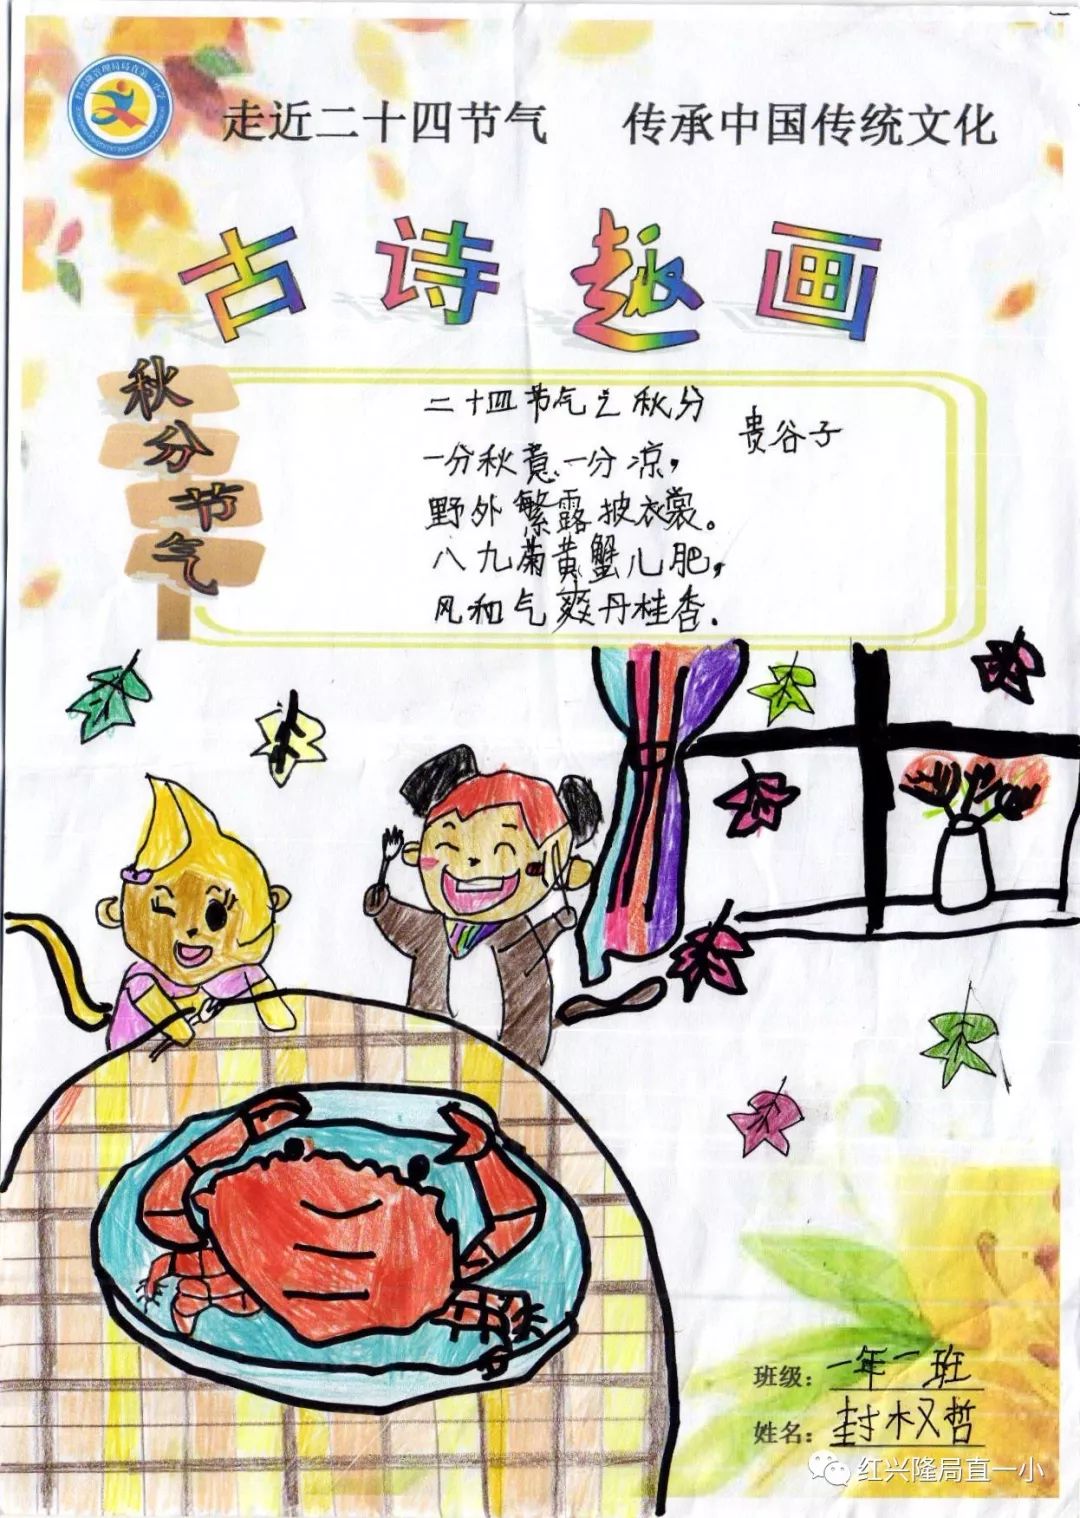 走近二十四节气 传承中国传统文化
古诗趣画
秋分节气
二十四节气之秋分
贵谷子
一分秋意一分凉，
野外繁露披衣裳。
八九菊黄蟹儿肥，
风和气爽丹桂香.
班级：一年一班
姓名：封权哲
红兴隆局直一小